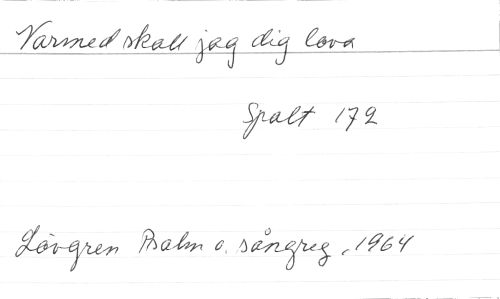 Varmed skall jag dig lova
Spalt 172
Lövgren Psalm o. sångreg., 1964